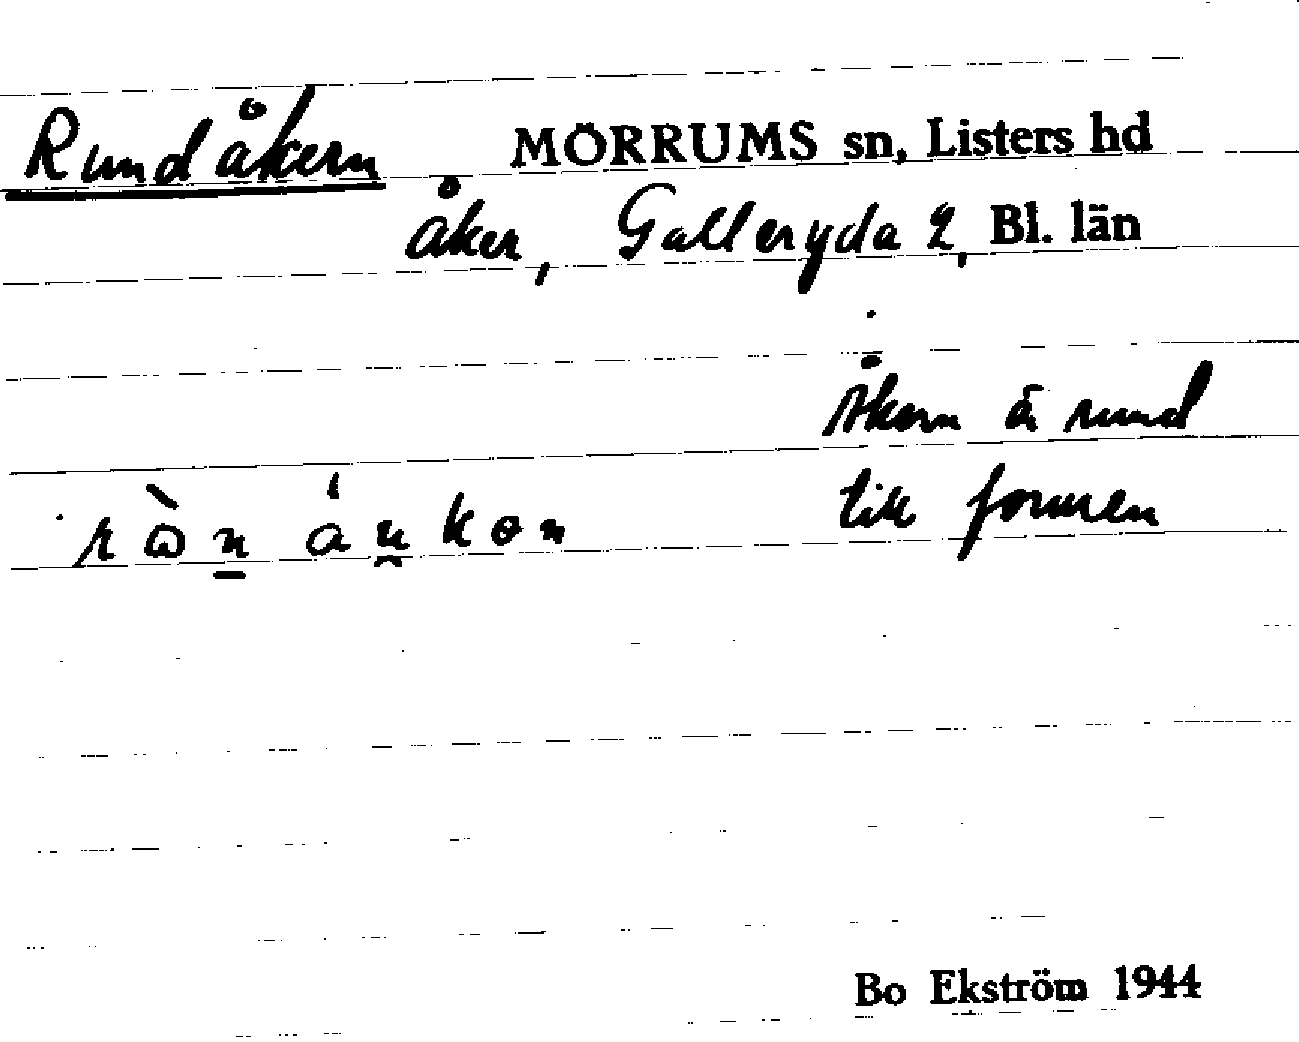 Rundåkern MÖRRUMS sn, Listers hd
åker, Galleryda 2, Bl. län
Åkern ä rund
till formen
Bo Ekström 1944